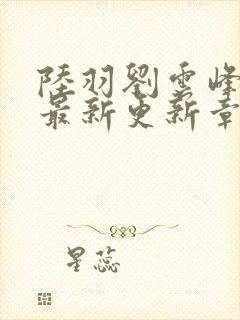 陸羽劉雲峰
最新更新章
星蕊